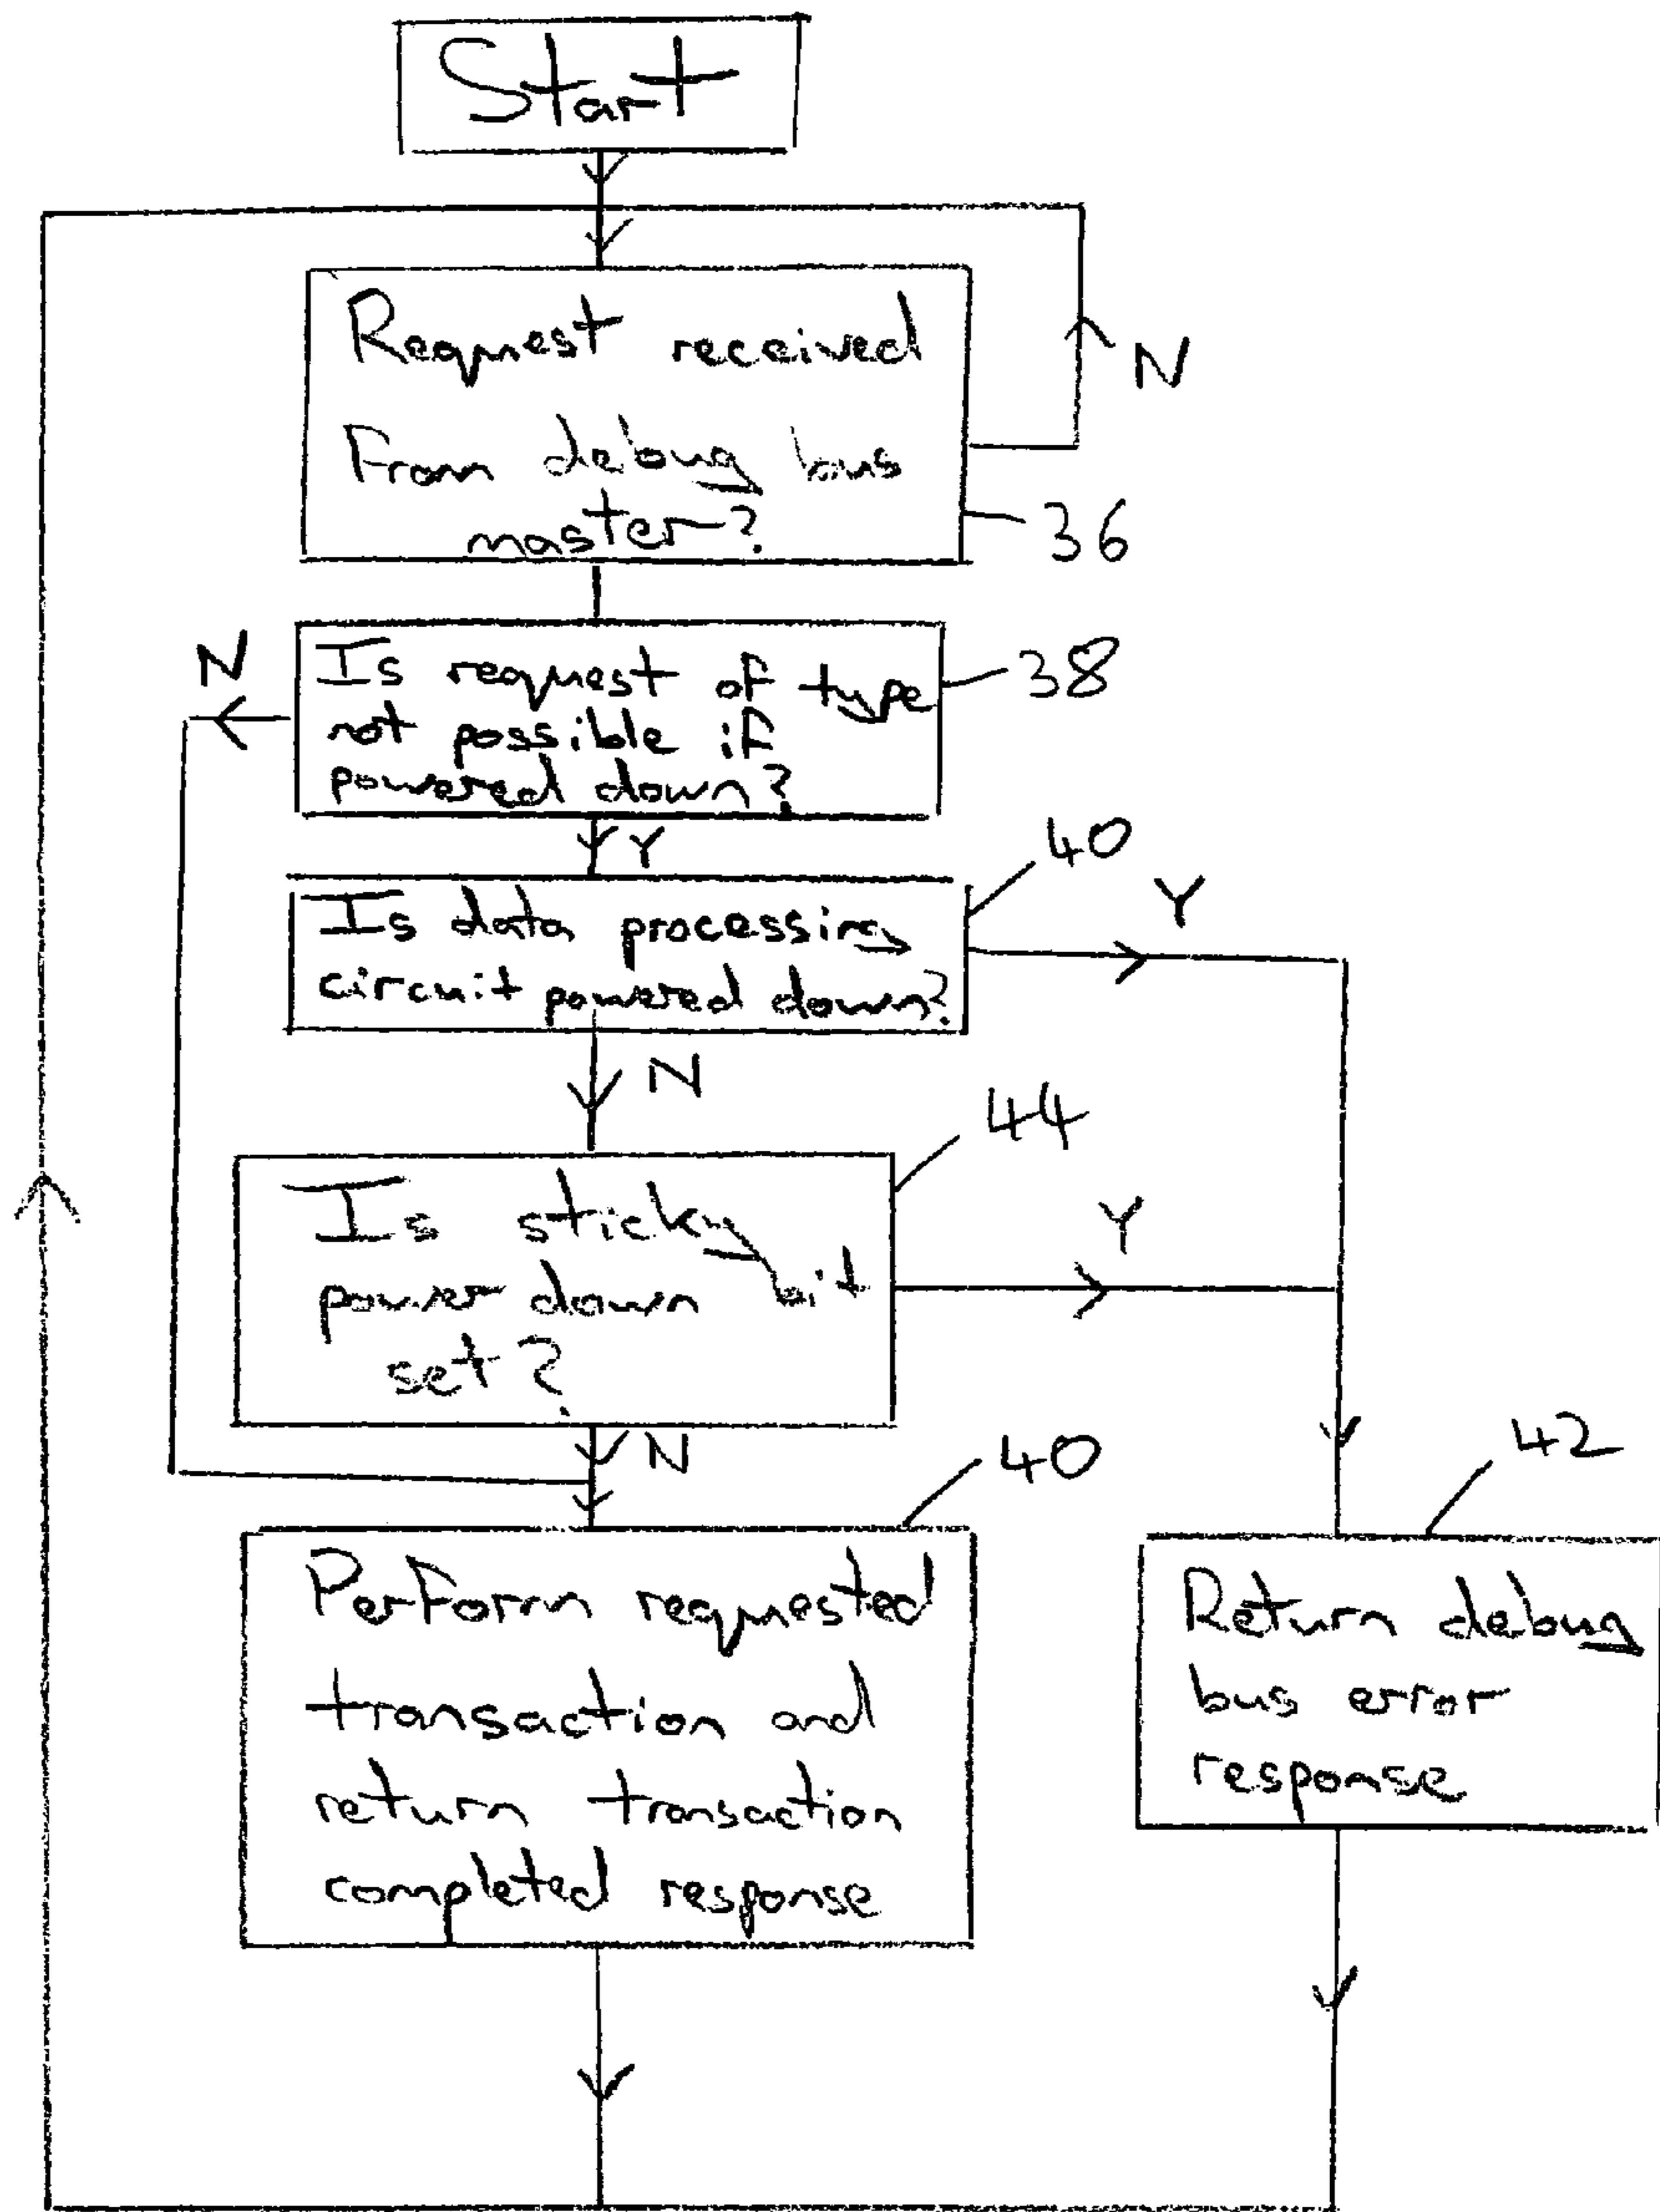 Start
Request received
From debug bus
master?
N
36
Is request of type
not possible if
powered down?
N
38
Y
Is data processing
circuit powered down?
40
Y
N
Is sticky
power down bit
set?
44
Y
N
Perform requested
transaction and
return transaction
completed response
40
Return debug
bus error
response
42